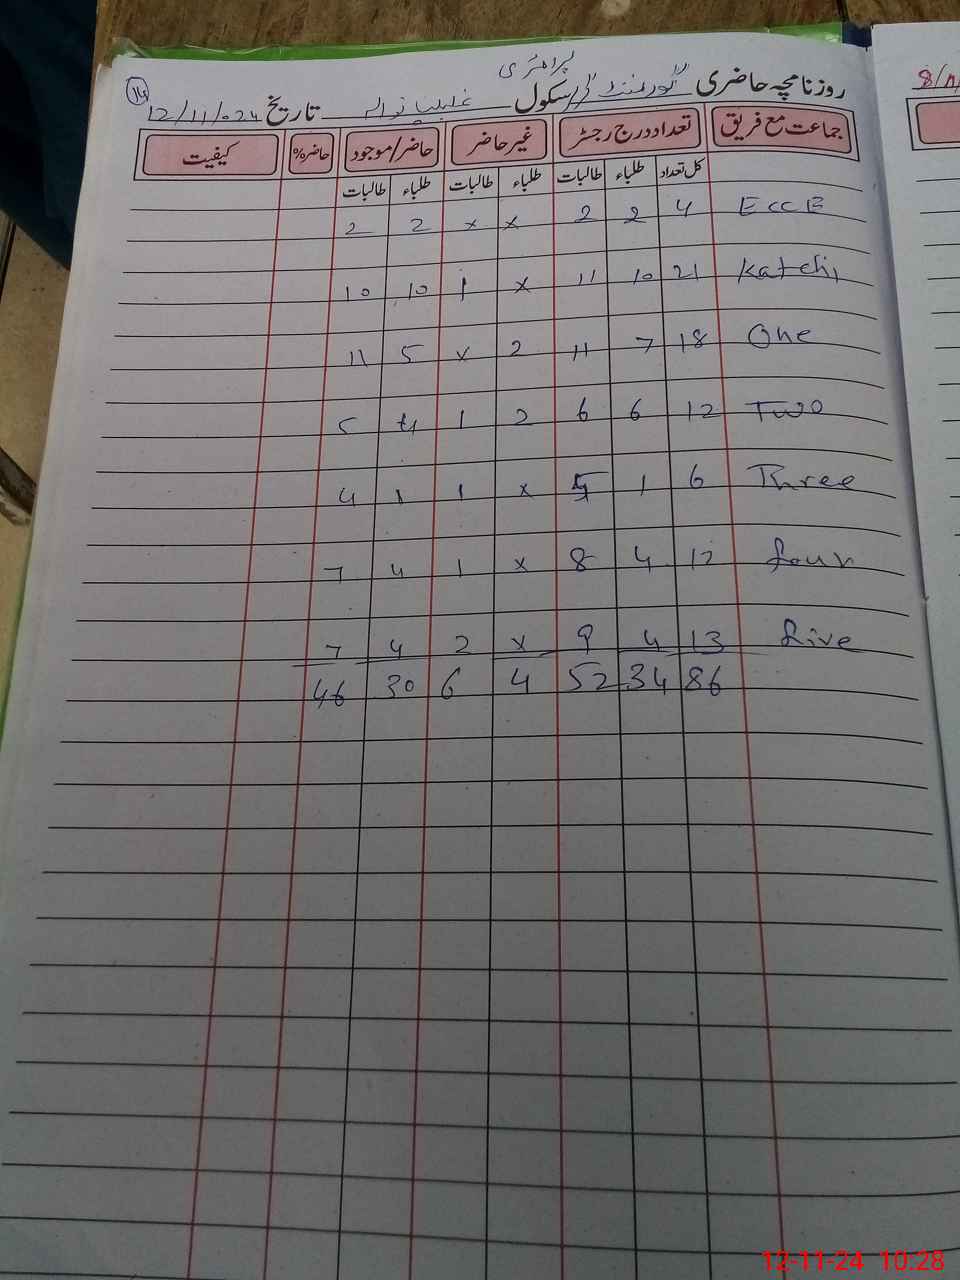 پرائمری
روزنامچہ حاضری گورنمنٹ سکول تاریخ 12/11/024
جماعت مع فریق تعداد درج رجسٹر غیر حاضر حاضر/موجود حاضر% کیفیت
کل تعداد طلباء طالبات طلباء طالبات طلباء طالبات
EccE 4 2 2 x x 2 2
Katchi 21 10 11 x 1 10 10
One 18 7 11 2 x 5 11
Two 12 6 6 2 1 4 5
Three 6 1 5 x 1 1 4
four 12 4 8 x 1 4 7
five 13 4 9 x 2 4 7
86 34 52 4 6 30 46
12-11-24 10:28